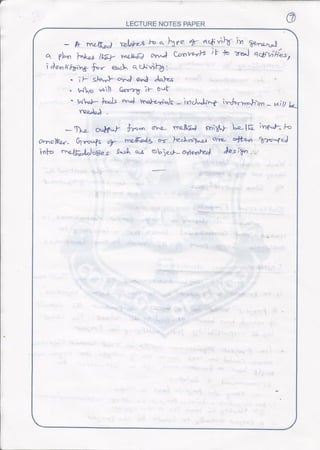 7
LECTURE NOTES PAPER
- A method relates to a type of activity in general
a plan takes that method and converts it to real activities,
identifying for each activity:
• it start and end dates
• who will carry it out
• what tools and materials - including information - will be
needed.
- The output from one method might be the input to
another. Groups of methods or techniques are often grouped
into methodologies such as object-oriented design.